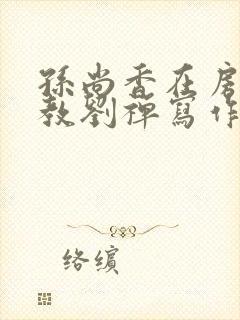 孫尚香在房
教劉禪寫作
络缤